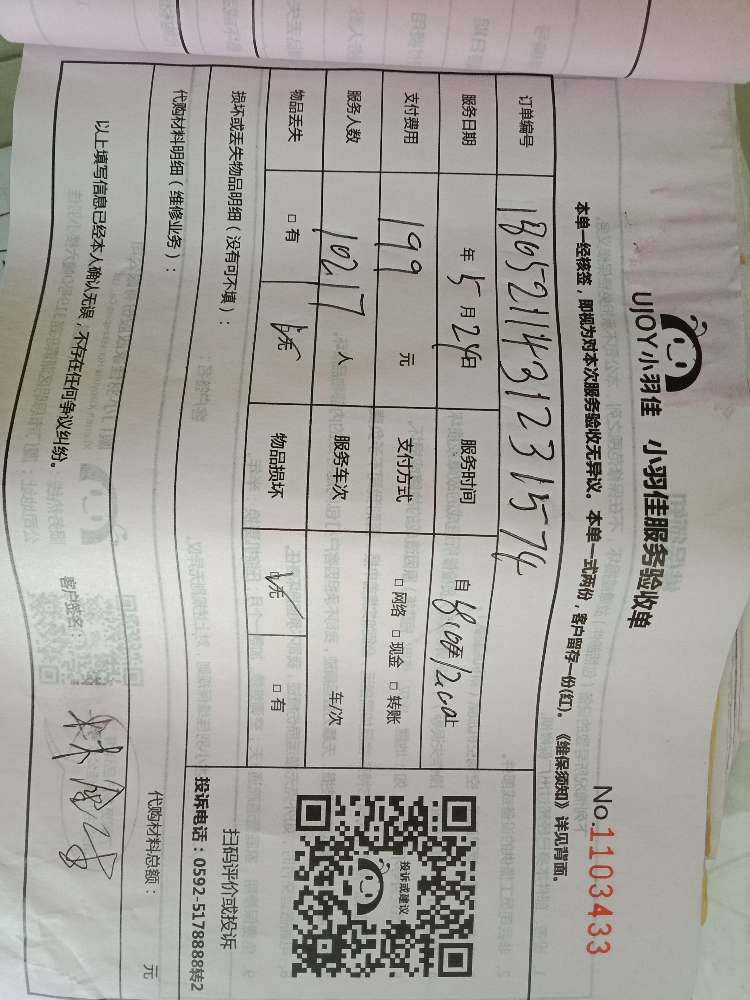 UJOY小羽佳 小羽佳服务验收单
No.1103433
本单一经核签，即视为对本次服务验收无异议。本单一式两份，客户留存一份(红)。《维保须知》详见背面。
订单编号 1805211431231574
服务日期 年5月24日 服务时间 自
支付费用 199元 支付方式 □网络 □现金 □转账
服务人数 10217人 服务车次 车/次
物品丢失 □有 ☑无 物品损坏 ☑无 □有
投诉或建议
扫码评价或投诉
投诉电话：0592-5178888转2
损坏或丢失物品明细（没有可不填）：
代购材料明细（维修业务）：
代购材料总额： 元
以上填写信息已经本人确认无误，不存在任何争议纠纷。 客户签名：